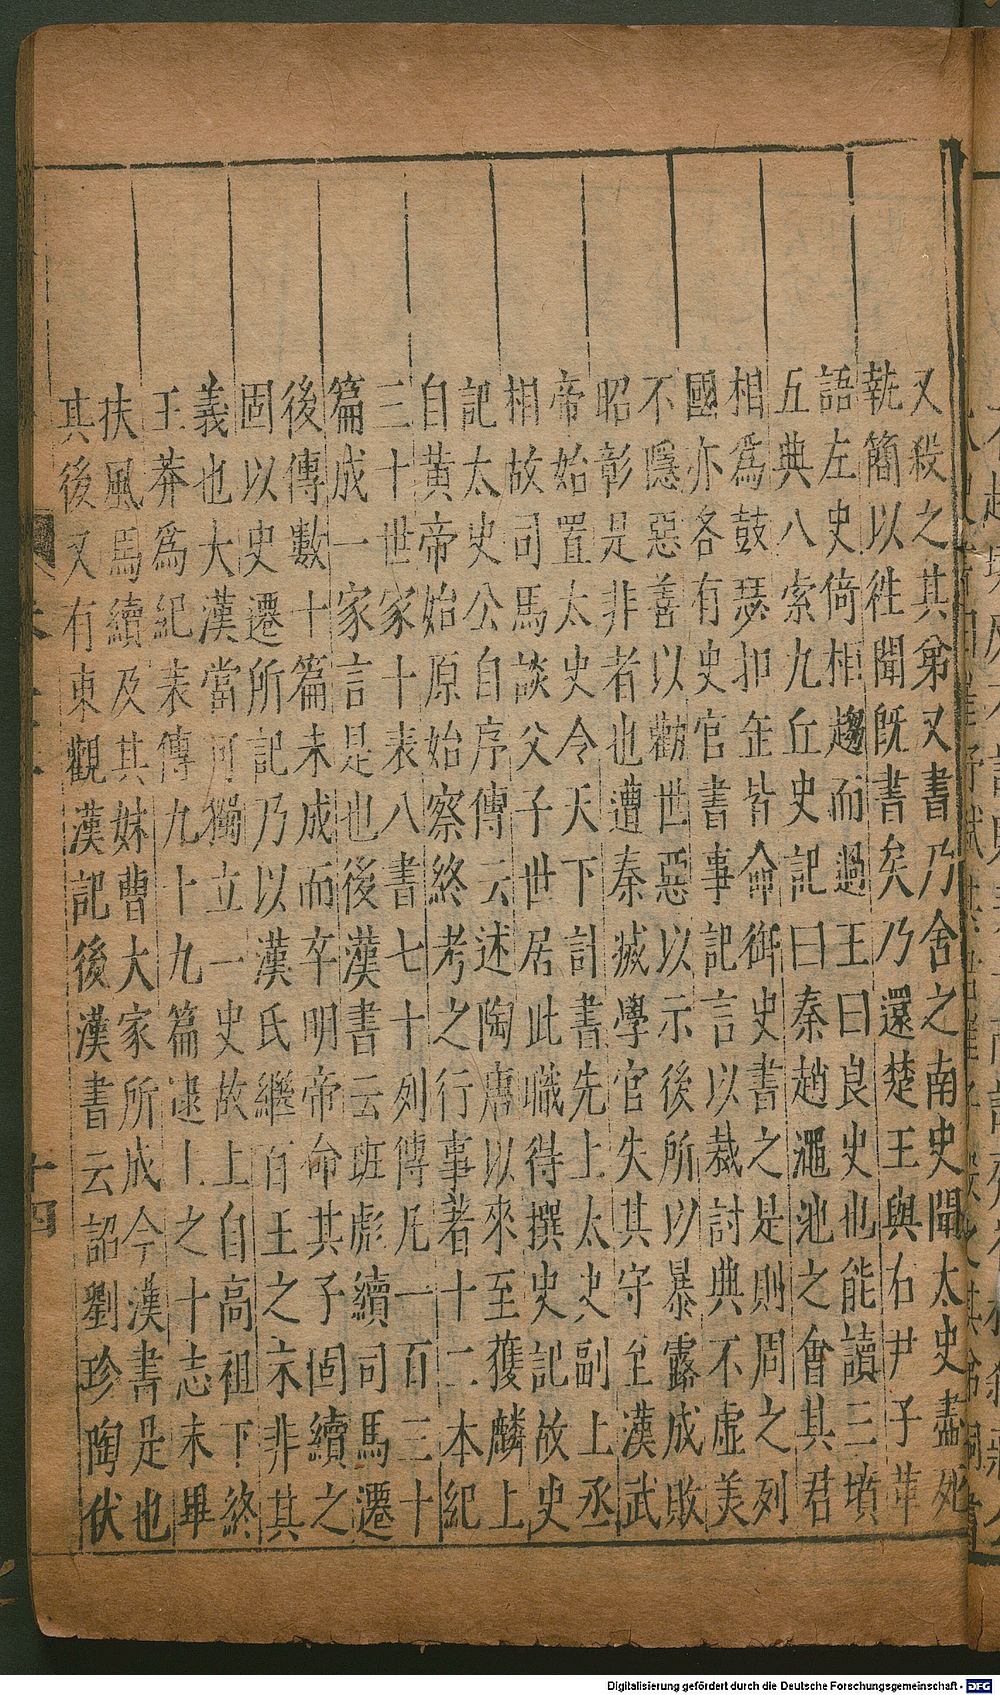 又殺之其弟又書乃舍之南史聞太史盡死
執簡以徃聞旣書矣乃還楚王與右尹子革
語左史倚相趨而過王曰良史也能讀三墳
五典八索九丘史記曰秦趙澠池之會其君
相爲鼓瑟扣缶皆命御史書之是則周之列
國亦各有史官書事記言以裁討典不虛美
不隱惡善以勸世惡以示後所以暴露成敗
昭彰是非者也遭秦㓕學官失其守至漢武
帝始置太史令天下計書先上太史副上丞
相故司馬談父子世居此職待撰史記故史
記太史公自序傳云述陶唐以來至獲麟上
自黃帝始原始察終考之行事著十二本紀
三十世家十表八書七十列傳凡一百三十
篇成一家言是也後漢書云班彪續司馬遷
後傳數十篇未成而卒明帝命其子固續之
固以史遷所記乃以漢氏繼百王之末非其
義也大漢當可獨立一史故上自高祖下終
王莽爲紀表傳九十九篇逮上之十志未畢
扶風馬續及其妹曹大家所成今漢書是也
其後又有東觀漢記後漢書云詔劉珍陶伏
十四
Digitalisierung gefördert durch die Deutsche Forschungsgemeinschaft - DFG